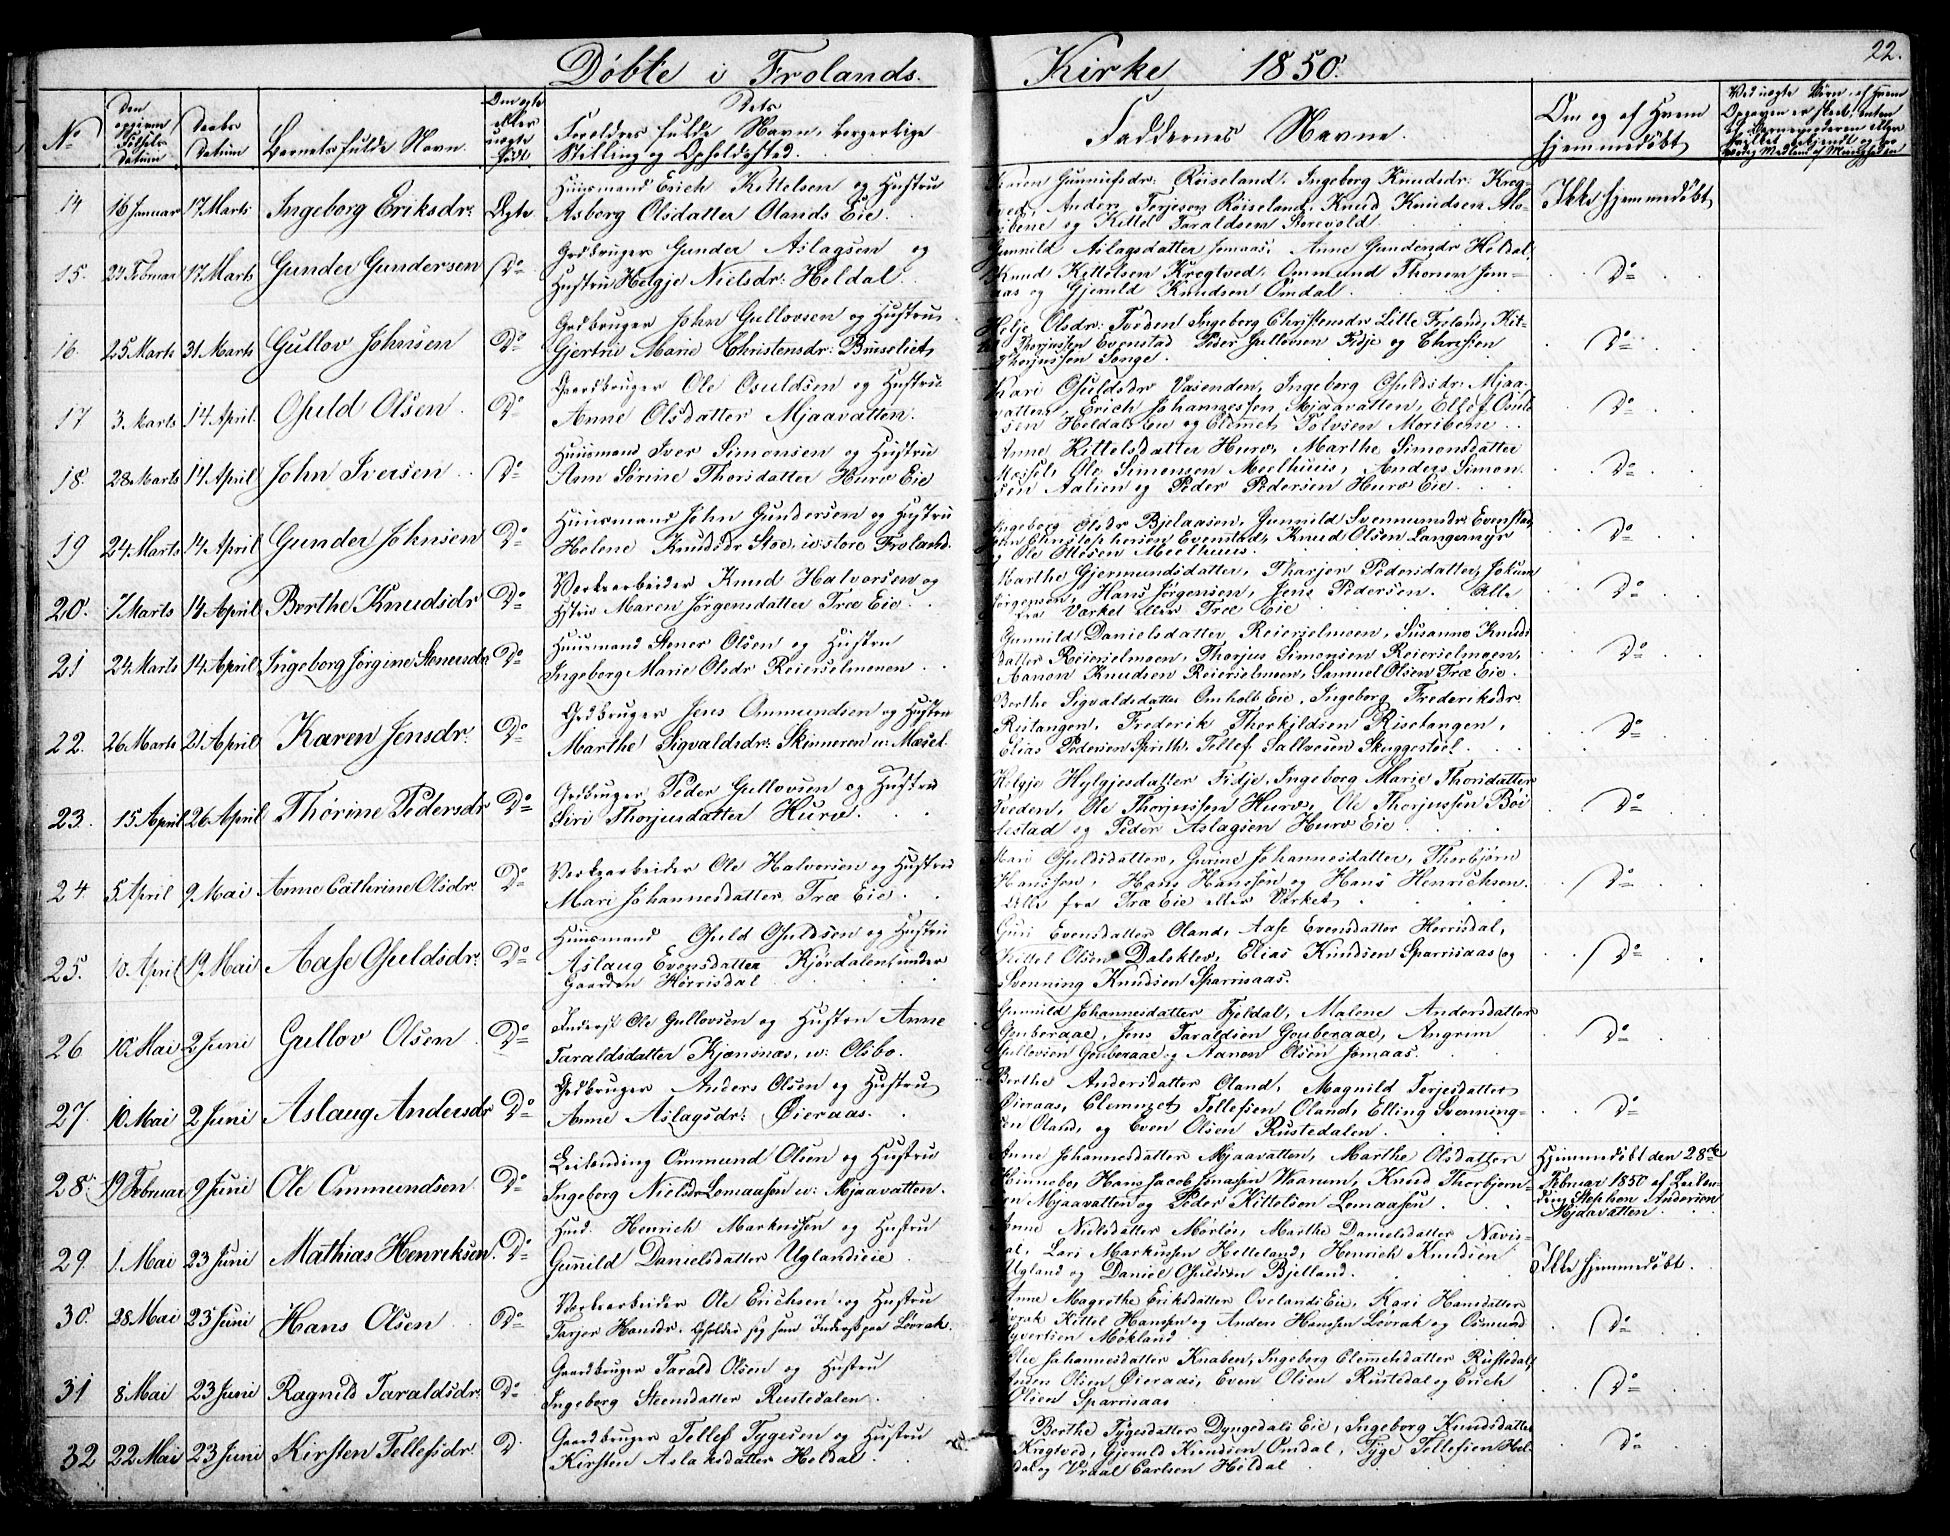 Døbte i Frolands Kirke 1850.
22.
No
Den opgivne Fødsels datum
Daabs datum
Barnets fulde Navn.
Om ægte eller uægte født
Dets Foreldres fulde Navn, borgerlige Stilling og Opholdssted.
Faddernes Navne.
Om og af hvem hjemmedøbt
14 16 Januar 17 Marts Ingeborg Eriksdr: Ægte
Huusmand Erich Kittelsen og Hustru
Asborg Olsdatter Olands Eie.
Gunnufsdr: Røiseland, Ingeborg Knudsdr:
Anders Terjesen Røiseland, Knud Knudsen
og Kittel Taraldsen Storevold
Ikke hjemmedøbt
15. 24 Februar 17 Marts Gunder Gundersen Do
Grdbruger Gunder Aslagsen og
Hustru Helgje Nielsdr: Heldal.
Gunnild Aslagsdatter Jomaas, Anne Gundersdr Heldal,
Knud Kittelsen Kregtved, Ommund Thorsen Jom-
aas og Gjeruld Knudsen Omdal.
Do
16. 25 Marts 31 Marts Gullov Johnsen Do
Grdbruger John Gullovsen og Hustru
Gjertru Marie Christensdr: Buseliet,
Helje Olsdr: Tveden, Ingeborg Christensdr Lille Froland, Kit-
Thorjussen Evenstad Peder Gullovsen Fidje og Christen
Thorjussen Songe.
Do
17 3. Marts 14 April. Osuld Olsen. Do
Gaardbruger Ole Osuldsen og Hustru
Anne Olsdatter Mjaavatten.
Kari Osuldsdr Vasenden, Ingeborg Osuldsdr: Mjaa-
vatten, Erich Johannessen Mjaavatten, Ellef Osuld-
sen Heldals Eie og Clemet Tolvsen Moribene.
Do
18. 28 Marts 14 April John Iversen Do
Huusmand Iver Simonsen og Hustru
Ann Sørine Thorsdatter Hurv Eie
Anne Kittelsdatter Hurv, Marthe Simonsdatter
Mæsel, Ole Simonsen Meelhuus, Anders Simon-
sen Aalien og Peder Pedersen Hurv Eie.
Do
19 24 Marts 14 April Gunder Johnsen Do
Huusmand John Gundersen og Hustru
Helene Knudsdr Stoe, u: store Froland.
Ingeborg Olsdr Bjelaasen, Gunnild Svennumsdr: Evenstad,
John Christophersen Evenstad, Knud Olsen Langemyr
og Ole Ottesen Meelhuus.
Do
20. 7 Marts 14 April Berthe Knudsdr Do
Verksarbeider Knud Halvorsen og
Hstru Maren Jørgensdatter Træ Eie.
Marthe Gjermundsdatter, Tharjer Pedersdatter, Jokum
Jørgensen, Hans Jørgensen, Jens Pedersen. Alle
fra Værket eller Træ Eie
Do
21 24 Marts 14 April Ingeborg Jørgine Stenersdr Do
Huusmand Stener Olsen og Hustru
Ingeborg Marie Olsdr Reierselmoen
Gunnild Danielsdatter Reierselmoen, Susanne Knuds-
datter Reierselmoen, Thorjus Simonsen Reierselmoen,
Aanon Knudsen Reierselmoen, Samuel Olsen Træ Eie.
Do
22. 26 Marts 21 April Karen Jensdr: Do
Grdbruger Jens Ommundsen og Hustru
Marthe Sigvaldsdr: Skinneren u. Mæsel.
Berthe Sigvaldsdatter Omholt Eie, Ingeborg Frederiksdr.
Ristangen, Frederik Therkildsen Risetangen,
Elias Pedersen Sprith, Tellef Sallvesen Skuggestøel.
Do
23. 15 April 26 April Thorine Pedersdr Do
Grdbruger Peder Gullovsen og Hustru
Siri Thorjusdatter Hurv.
Helgje Hylgjesdatter Fidje, Ingeborg Marie Thorsdatter
Tveden, Ole Thorjussen Hurv, Ole Thorjussen Bøi-
lestad og Peder Aslagsen Hurv Eie.
Do
24. 5 April 9 Mai Anne Cathrine Olsdr. Do
Verksarbeider Ole Halvorsen og Hustru
Mari Johannesdatter Træ Eie.
Mari Osuldsdatter, Gurine Johannesdatter, Thorbjørn
Hanssen, Hans Hanssen og Hans Henrichsen.
Alle fra Træ Eie eller Værket
Do
25. 10. April 19 Mai Aase Osuldsdr: Do
Huusmand Osuld Osuldsen og Hustru
Aslaug Evensdatter Kjørdalen, under
Gaarden Herrisdal
Guri Evensdatter Oland, Aase Evensdatter Herrisdal,
Kittel Olsen Dalsklev, Elias Knudsen Sparrisaas og
Svenning Knudsen Sparrisaas.
Do
26 10. Mai 2 Juni Gullov Olsen Do
Inderst Ole Gullovsen og Hustru Anne
Taraldsdatter Kjønnæs, u: Olsbo.
Gunnild Johannesdatter Fjeldal, Malene Andersdatter
Gouberaae, Jens Taraldsen Gouberaae, Angrim
Gullovsen Gouberaae og Aanon Olsen Jomaas.
Do
27. 10. Mai 2 Juni Aslaug Andersdr Do
Grdbruger Anders Olsen og Hustru
Anne Aslagsdr: Øieraas.
Berthe Andersdatter Oland, Magnild Terjesdatter
Øieraas, Clemuzet Tellefsen Oland, Elling Svenning-
sen Oland, og Even Olsen Rustedalen.
Do
28. 19 Februar 9 Juni Ole Ommundsen Do
Leilending Ommund Olsen og Hustru
Ingeborg Nielsdr Lomaasen u: Mjaavatten.
Anne Johannesdatter Mjaavatten, Marthe Olsdatter
Hinnebo, Hans Jacob Jonassen Waarum, Knud Thorbjørn-
sen Mjaavatten og Peder Kittelsen Lomaasen
Hjemmedøbt den 28de
Februar 1850 af Leilen-
ding Stephen Andersen
Mjaavatten.
29. 1. Mai 23 Juni Mathias Henriksen. Do
Hud. Henrich Markussen og Hustru
Gunnild Danielsdatter Uglandseie
Anne Nielsdatter Mørløs, Marthe Danielsdatter Navis-
dal, Lars Markussen Helleland, Henrich Knudsen
Ugland og Daniel Osuldsen Bjelland.
Ikke hjemmedøbt.
30. 28 Mai 23 Juni Hans Olsen Do
Verksarbeider Ole Erichsen og Hustru
Tarjer Hansdr. Opholder sig som Inderst paa Løvrak.
Anne Magrethe Eriksdatter Ovelands Eie, Kari Hansdatter
Løvrak Kittel Hansen og Anders Hanssen Løvrak og Osmund
Syvertsen Mokland
Do
31 8 Mai 23 Juni Ragnild Taraldsdr: Do
Gaardbruger Tarald Olsen og Hustru
Ingeborg Steensdatter Rustedalen.
Johannesdatter Knaben, Ingeborg Clemetsdatter Rustedal,
Anders Olsen Øieraas, Even Olsen Rustedal og Erich
Olsen Sparrisaas
Do
32 22 Mai 23 Juni Kirsten Tellefsdr. D
Gaardbruger Tellef Tygesen og Hustru
Kirsten Aslaksdatter Heldal.
Berthe Tygesdatter Dyngedals Eie, Ingeborg Knudsdatter
Kregtved, Gjeruld Knudsen Omdal, Tyge Tellefsen Hel-
dal og Vraal Carlsen Heldal
Do